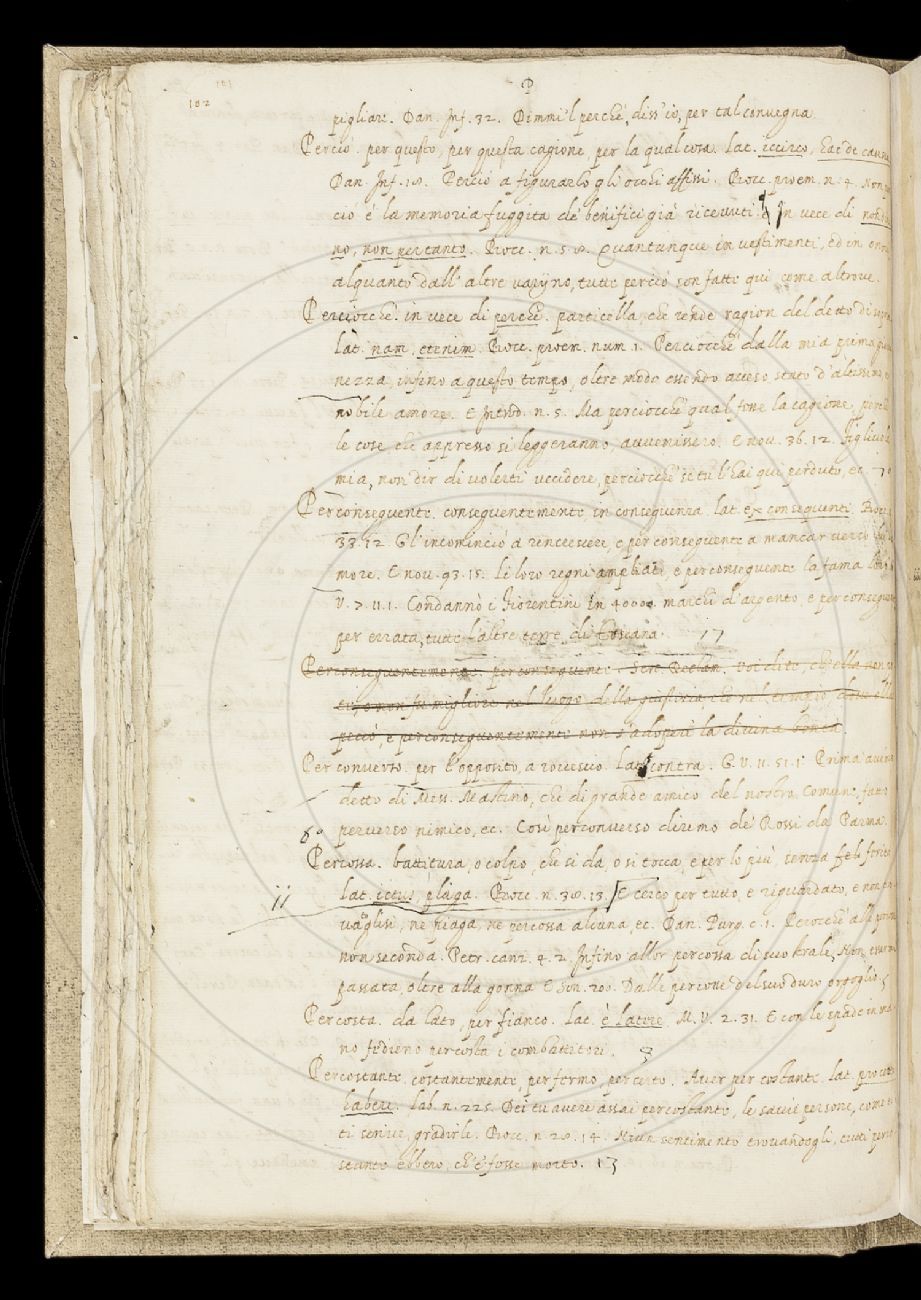 101
102
P
pigliare. Dan. Inf. 32. Dimmi 'l perchè, diss' io, per tal convegna
Perciò. per questo, per questa cagione, per la qual cosa. lat. iccirco, hac de causa
Dan. Inf. 18. Perciò a figurarlo gli occhi affissi. Bocc. proem. n. 4. Non per
ciò è la memoria fuggita de' benifici già ricevuti. In vece di
no, non pertanto. Bocc. n. 58. Quantunque in vestimenti, ed in onore
alquanto dall' altre varijno, tutte perciò son fatte quì come altrove.
Perciocchè. in vece di perchè. particella, che rende ragion del detto di sopra
lat. nam, etenim. Bocc. proem. num. 1. Perciocchè dalla mia prima gio
nezza, infino a questo tempo, oltre modo essendo acceso stato d'altissimo, e
nobile amore. E Introd. n. 5. Ma perciocchè qual fosse la cagione, perchè
le cose che appresso si leggeranno, avvenissero. E nov. 36. 12. Figliuola
mia, non dir di volerti uccidere, perciocchè se tu l'hai quì perduto, ec.
Perconseguente. conseguentemente in conseguenza. lat. ex consequenti. Bocc.
33. 12. Gl' incominciò a rincrescere, e per conseguente a mancar verso
more. E nov. 93. 15. Li loro regni ampliati, e perconseguente la fama
V. 7. 11. 1. Condannò i Fiorentini in 40000 marchi d'argento, e per conseguente
per errata, tutte l'altre terre di Toscana. 17
Perconseguentemente. perconseguente. Sen. Declam. Voi dite, ch'ella non
fu migliore nel luogo della giustizia, che nel tempio,
peccò, e perconseguentemente non s'adoperò la divina bontà.
Per converso. per l'opposito, a rovescio. lat. contra. G. V. 11. 51. 1. Prima avem
detto di Mess. Mastino, che di grande amico del nostro Comune, fatto
perverso nimico, ec. Così perconverso diremo de' Rossi da Parma.
Percossa. battitura, o colpo, che si dà, o si tocca, e per lo più, senza ferita
ii
lat. ictus, plaga. Bocc. n. 38. 13. E cerco per tutto, e riguardato, e non
vagli si, nè piaga, nè percossa alcuna, ec. Dan. Purg. c. 1. Perocchè alle percosse
non seconda. Petr. canz. 4. 2. Infino allor percossa di suo strale, Non essermi
passata, oltre alla gonna. E Son. 200. Dalle percosse del suo duro orgoglio.
Percosta. da lato, per fianco. lat. è latere. M. V. 2. 31. E con le spade in ma
no fedieno percosta i combattitori. 3
Percostante. costantemente, per fermo, per certo. Aver per costante. lat. pro certo
habere. lab. n. 225. Dei tu avere assai percostante, le savie persone, come
ti scrive, gradirle. Bocc. n. 28. 14. Niun sentimento trovandogli,
stante ebbero, ch'e' fosse morto. 13